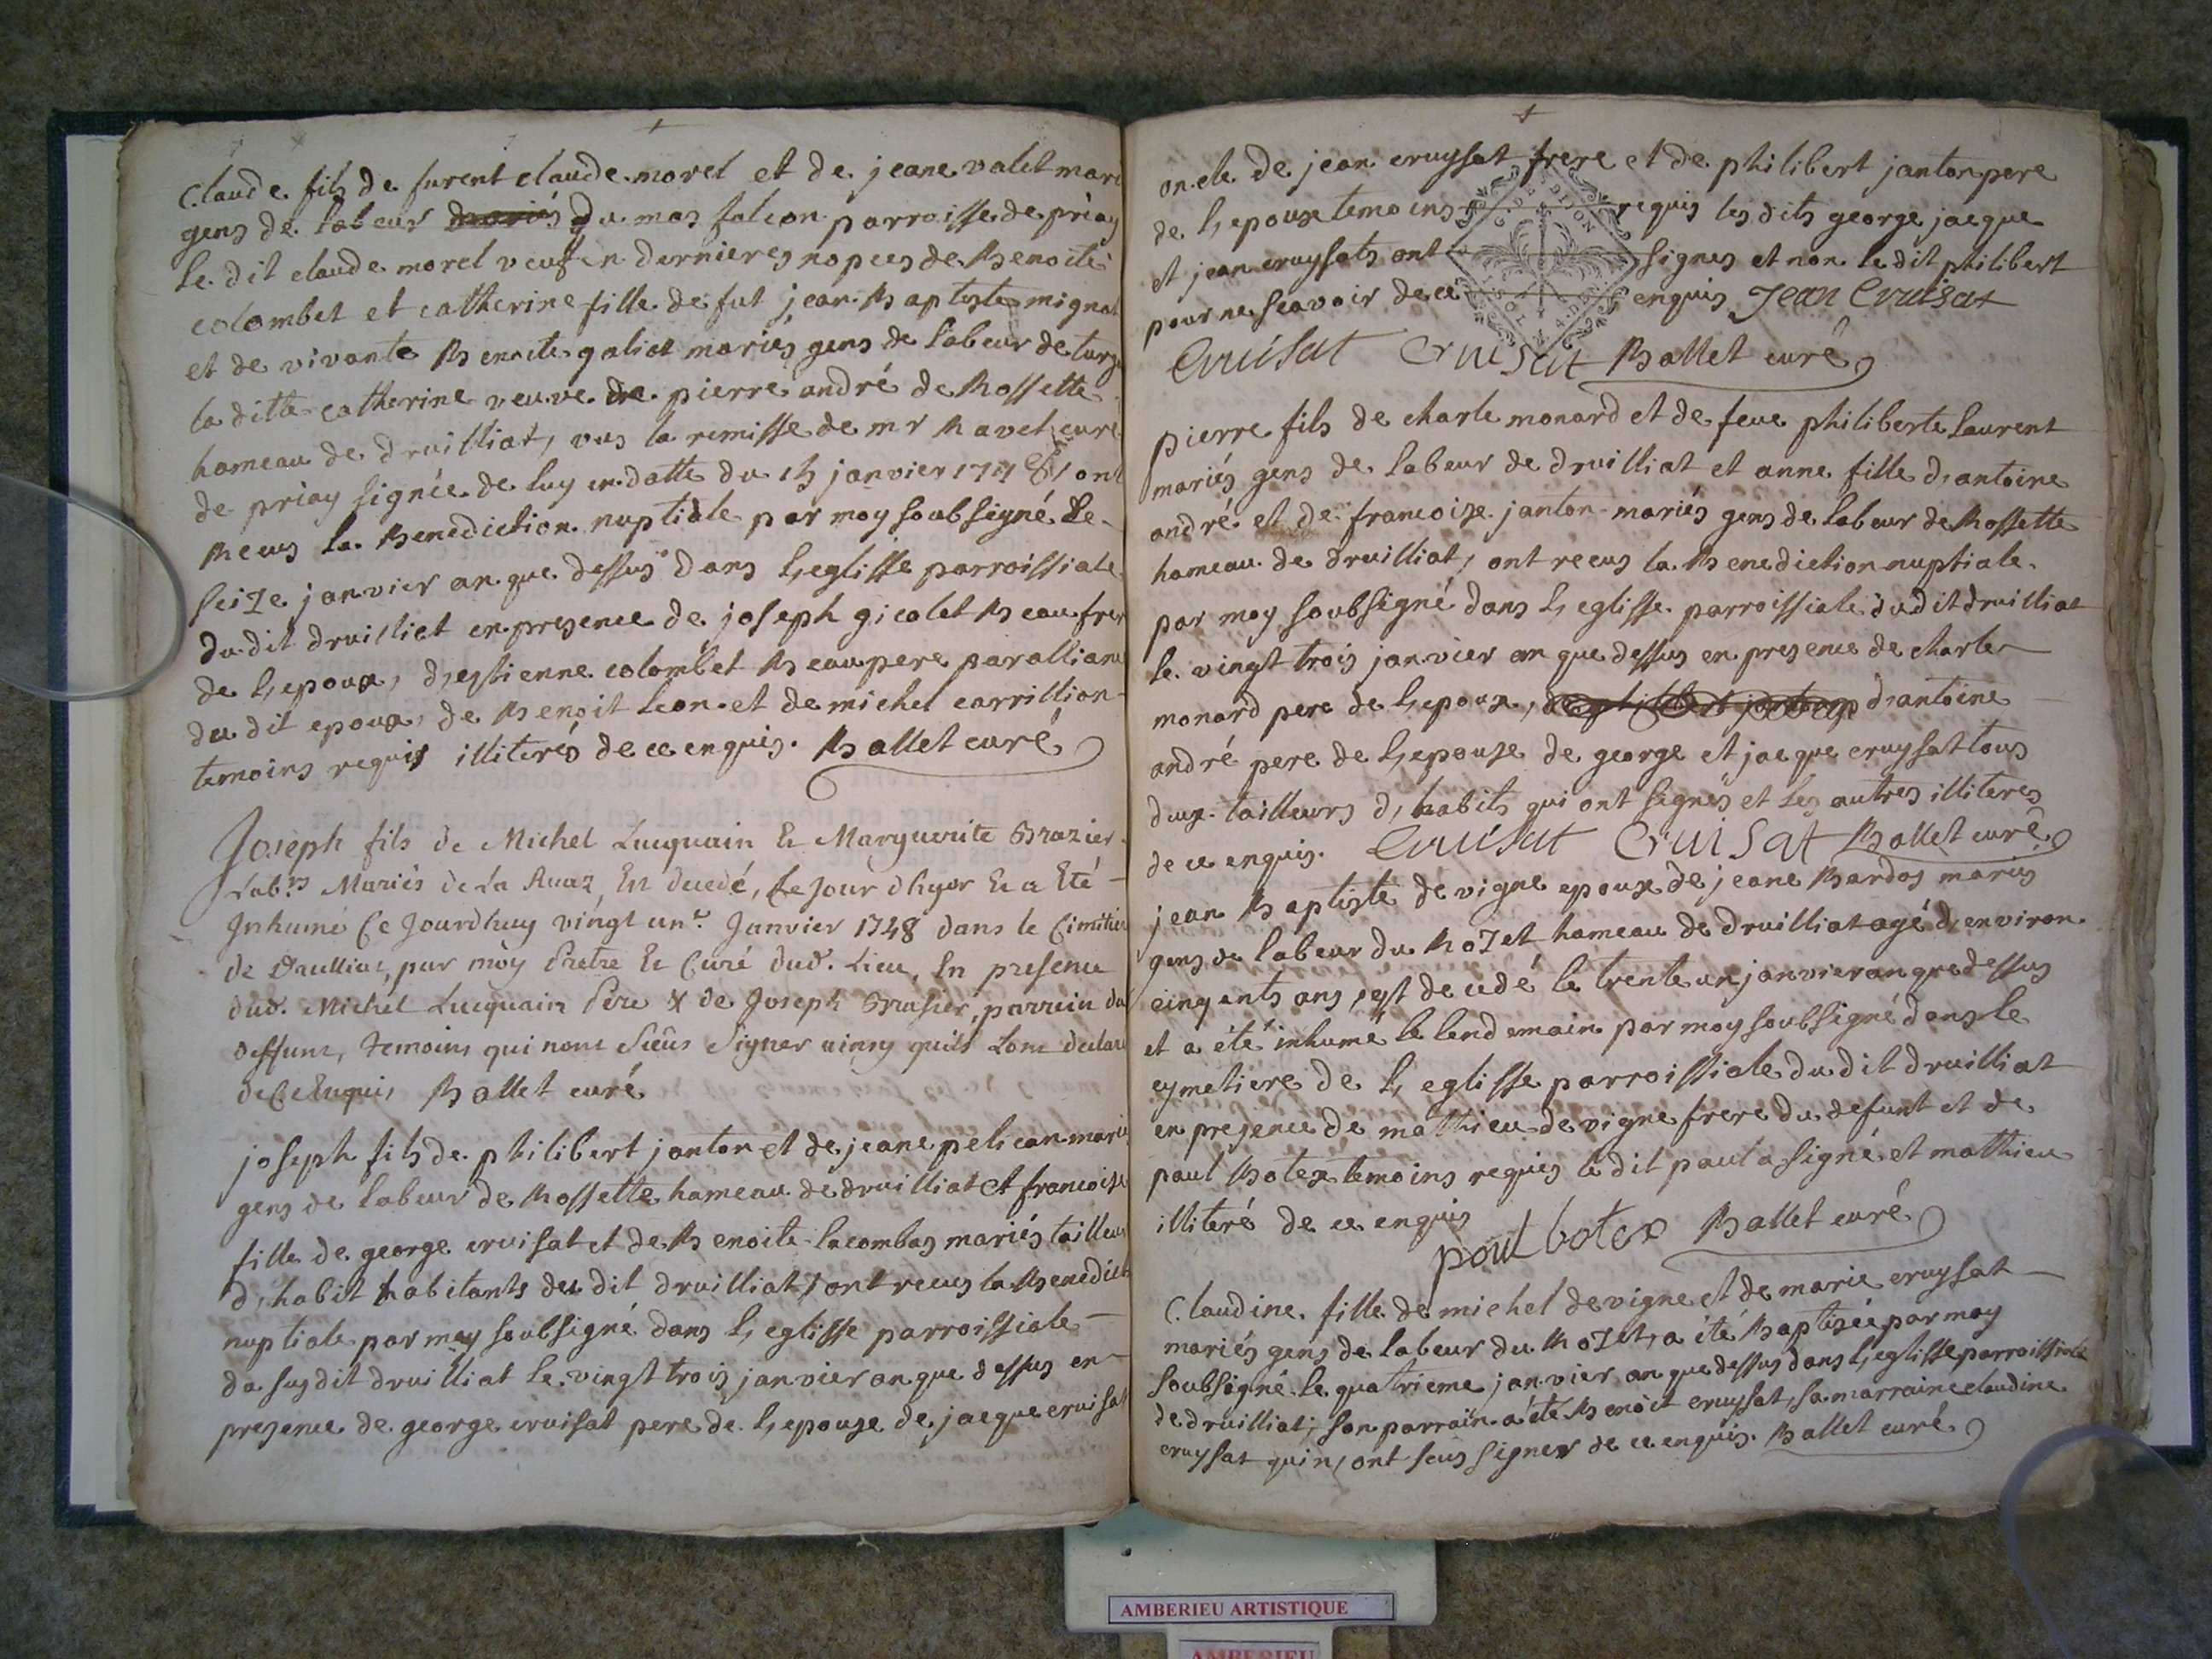 Claude fils de furent claude morel et de jeane valet mari
gens de labeur du mas falcon parroisse de priay
le dit claude morel veuf en dernieres nopces de Benoite
colombet et catherine fille de fut jean Baptiste mignat
et de vivante Benoite galiet mariés gens de labeur de
la ditte catherine veuve de pierre andré de Rossette
hameau de druilliat, vus la remisse de mr Ravet curé
de priay signée de luy en datte du 15 janvier ont
Recus la Benediction nuptiale par moy soubsigné Le
seize janvier an que dessus dans L,eglisse parroissiale
du dit druilliat en presence de joseph gicolet Beaufrer
de L,epoux, d,estienne colombet Beaupere par allianc
du dit epoux, de Benoit leon et de michel carrillion
temoins requis illiterés de ce enquis. Ballet curé
Joseph fils de Michel Lucquain & Marguerite Brazier
Labrs Mariés de La Ruaz, Est decedé, Le Jour d'hyer & a Eté
Inhumé Ce Jourdhuy vingt une Janvier 1748 dans le Cimitier
de Druilliat, par moy Pretre & Curé dud. Lieu, En presence
dud. Michel Lucquain Pere & de Joseph Brasier, parrein du
deffunt, temoins qui nont Sceûs Signer ainsy quils Lont declaré
de Ce Enquis Ballet curé
joseph fils de philibert janton et de jeane pelican marié
gens de labeur de Rossette hameau de druilliat et francoise
fille de george cruisat et de Benoite lacombas mariés tailleur
d,habit habitants du dit druilliat, ont recus la Benedict
nuptiale par moy soubsigné dans L,eglisse parroissiale
du susdit druilliat le vingt trois janvier an que dessus en
presence de george cruisat pere de L,epouse de jacque cruisat
oncle de jean cruysat frere et de philibert janton pere
de L,epoux temoins requis les dits george jacque
et jean cruysats ont signés et non le dit philibert
pour ne sçavoir de ce enquis Jean Cruisat
Cruisat Cruisat Ballet curé
pierre fils de charle monard et de feue philiberte laurent
mariés gens de labeur de druilliat et anne fille d,antoine
andré et de francoise janton mariés gens de labeur de Rossette
hameau de druilliat, ont recus la Benediction nuptiale
par moy soubsigné dans L,eglisse parroissiale du dit druilliat
le vingt trois janvier an que dessus en presence de charle
monard pere de L,epoux, d,antoine
andré pere de L,epouse de george et jacque cruysat tous
deux tailleurs d,habits qui ont signés et les autres illiteres
de ce enquis. Cruisat Cruisat Ballet curé
jean Baptiste de vigne epoux de jeane Bardos mariés
gens de labeur du Rozet hameau de druilliat agé d,environ
cinquents ans, est decedé le trente un janvier an que dessus
et a été inhumé le lendemain par moy soubsigné dans le
cymetiere de L,eglisse parroissiale du dit druilliat
en presence de mathieu de vigne frere du defunt et de
paul Botex temoins requis le dit paul a signé et mathieu
illiteré de ce enquis
poul botex Ballet curé
Claudine fille de michel devigne et de marie cruysat
mariés gens de labeur du Rozet, a été Baptisée par moy
soubsigné le quatrieme janvier an que dessus dans L,eglisse parroissiale
de druilliat; son parrain a été Benoit cruysat, sa marraine claudine
cruysat qui n,ont seus signer de ce enquis. Ballet curé
AMBERIEU ARTISTIQUE
AMBERIEU